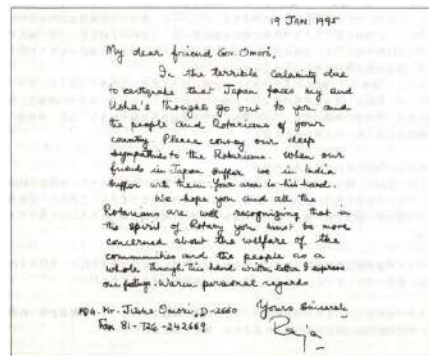 19 JAN 1995
My dear friend Gov. Omori,
In the terrible calamity due
to earthquake that Japan faces my and
Usha's thoughts go out to you and
the people and Rotarians of your
country. Please convey our deep
sympathies to the Rotarians. When our
friends in Japan suffer we in India
suffer with them. Your area is hit hard.
We hope you and all the
Rotarians are well recognizing that in
the spirit of Rotary you must be more
concerned about the welfare of the
communities and the people as a
whole. Through this hand written letter I express
our feelings. Warm personal regards
Yours Sincerely
Raja
Mr. Jisho Omori, D-2660
Fax 81-726-242669